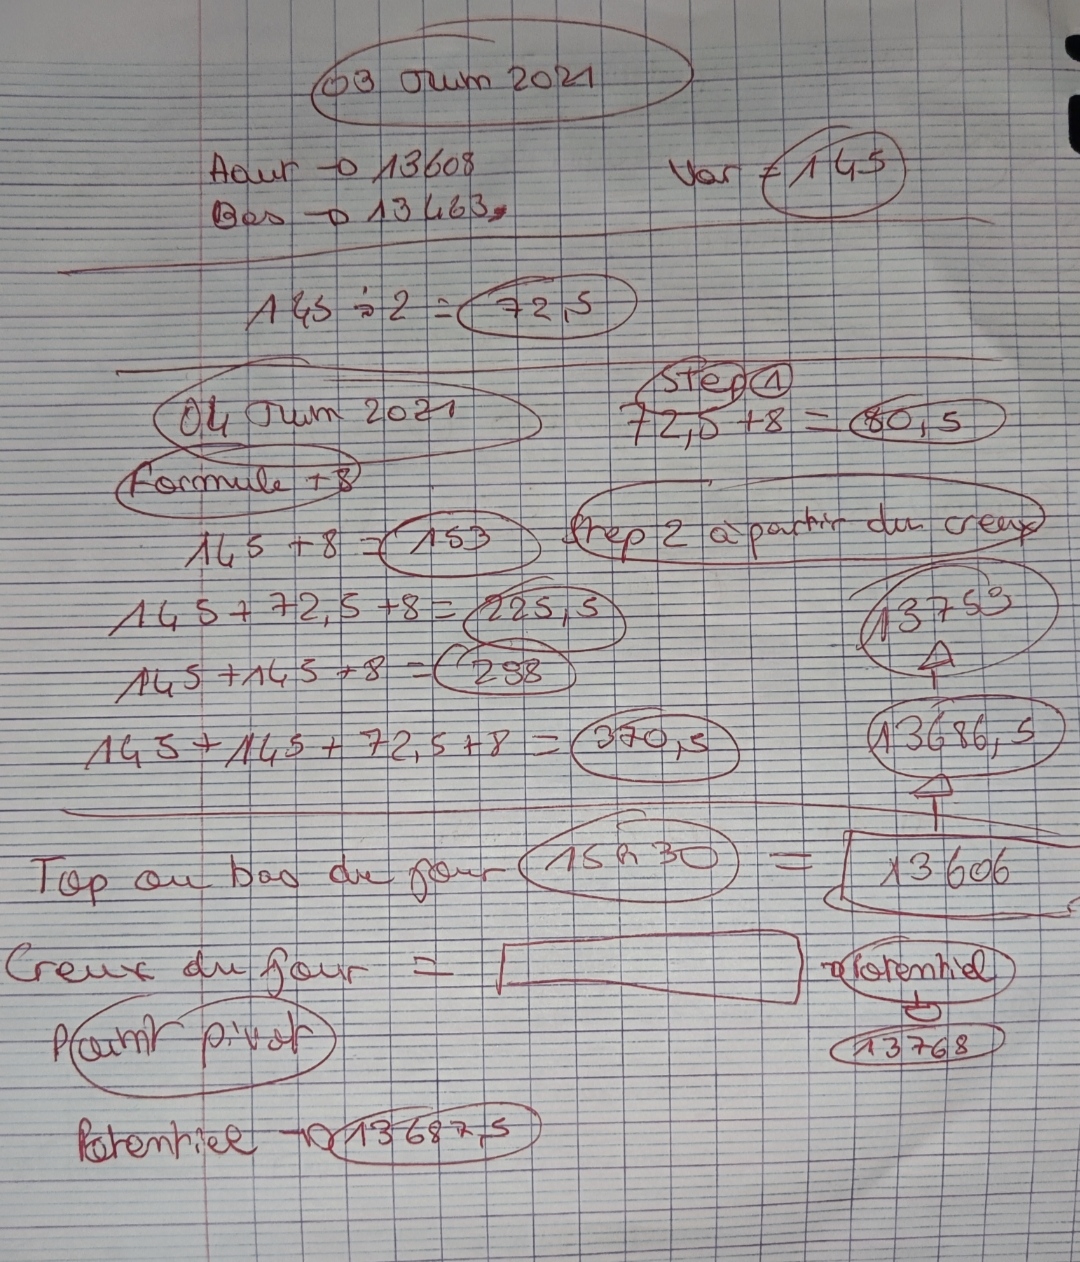 03 Juin 2021
Haut → 13608
Bas → 13463
Var = 145
145 ÷ 2 = 72,5
04 Juin 2021
Step 1
72,5 + 8 = 80,5
Formule + 8
145 + 8 = 153
Step 2 à partir du creux
145 + 72,5 + 8 = 225,5
13759
145 + 145 + 8 = 298
145 + 145 + 72,5 + 8 = 370,5
13686,5
Top ou bas du jour 15h30 = 13606
Creux du jour =
→ Potentiel
Point pivot
13768
Potentiel → 13687,5